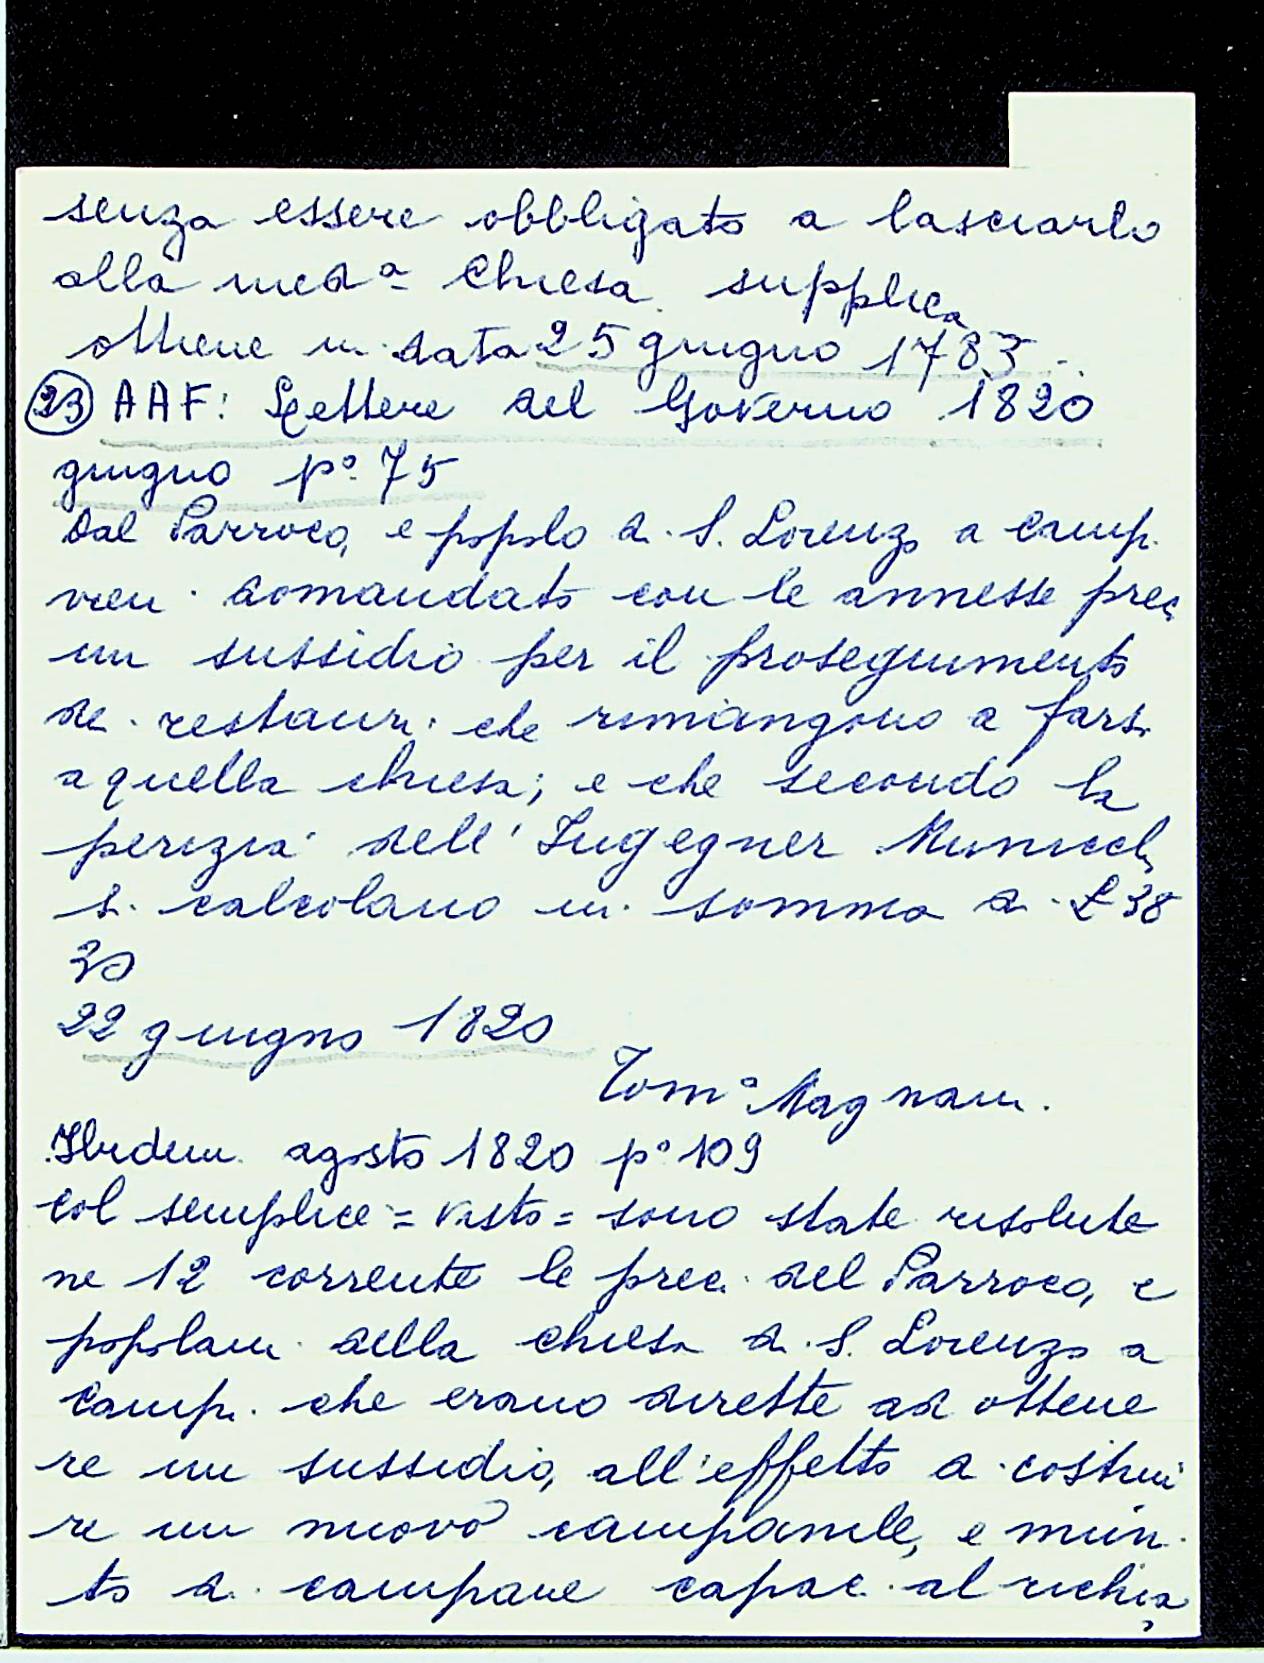 senza essere obbligato a lasciarlo
alla medª Chiesa supplica
ottiene in data 25 giugno 1783.
(23) AAF: Lettere del Governo 1820
giugno pº 75
Dal Parroco, e popolo di S. Lorenzo a Camp.
vien domandato con le annesse prec.
un sussidio per il proseguimento
dei restauri che rimangono a farsi
a quella chiesa; e che secondo la
perizia dell'Ingegner
si calcolano in somma di £ 38
20
22 giugno 1820
Tomº Magnani.
Ibidem agosto 1820 pº 109
Col semplice = visto = sono state risolute
ne 12 corrente le prec. del Parroco, e
popolani della chiesa di S. Lorenzo a
Campi. che erano dirette ad ottene
re un sussidio, all'effetto di costrui
re un nuovo campanile, e muni
to di campane capaci al richia